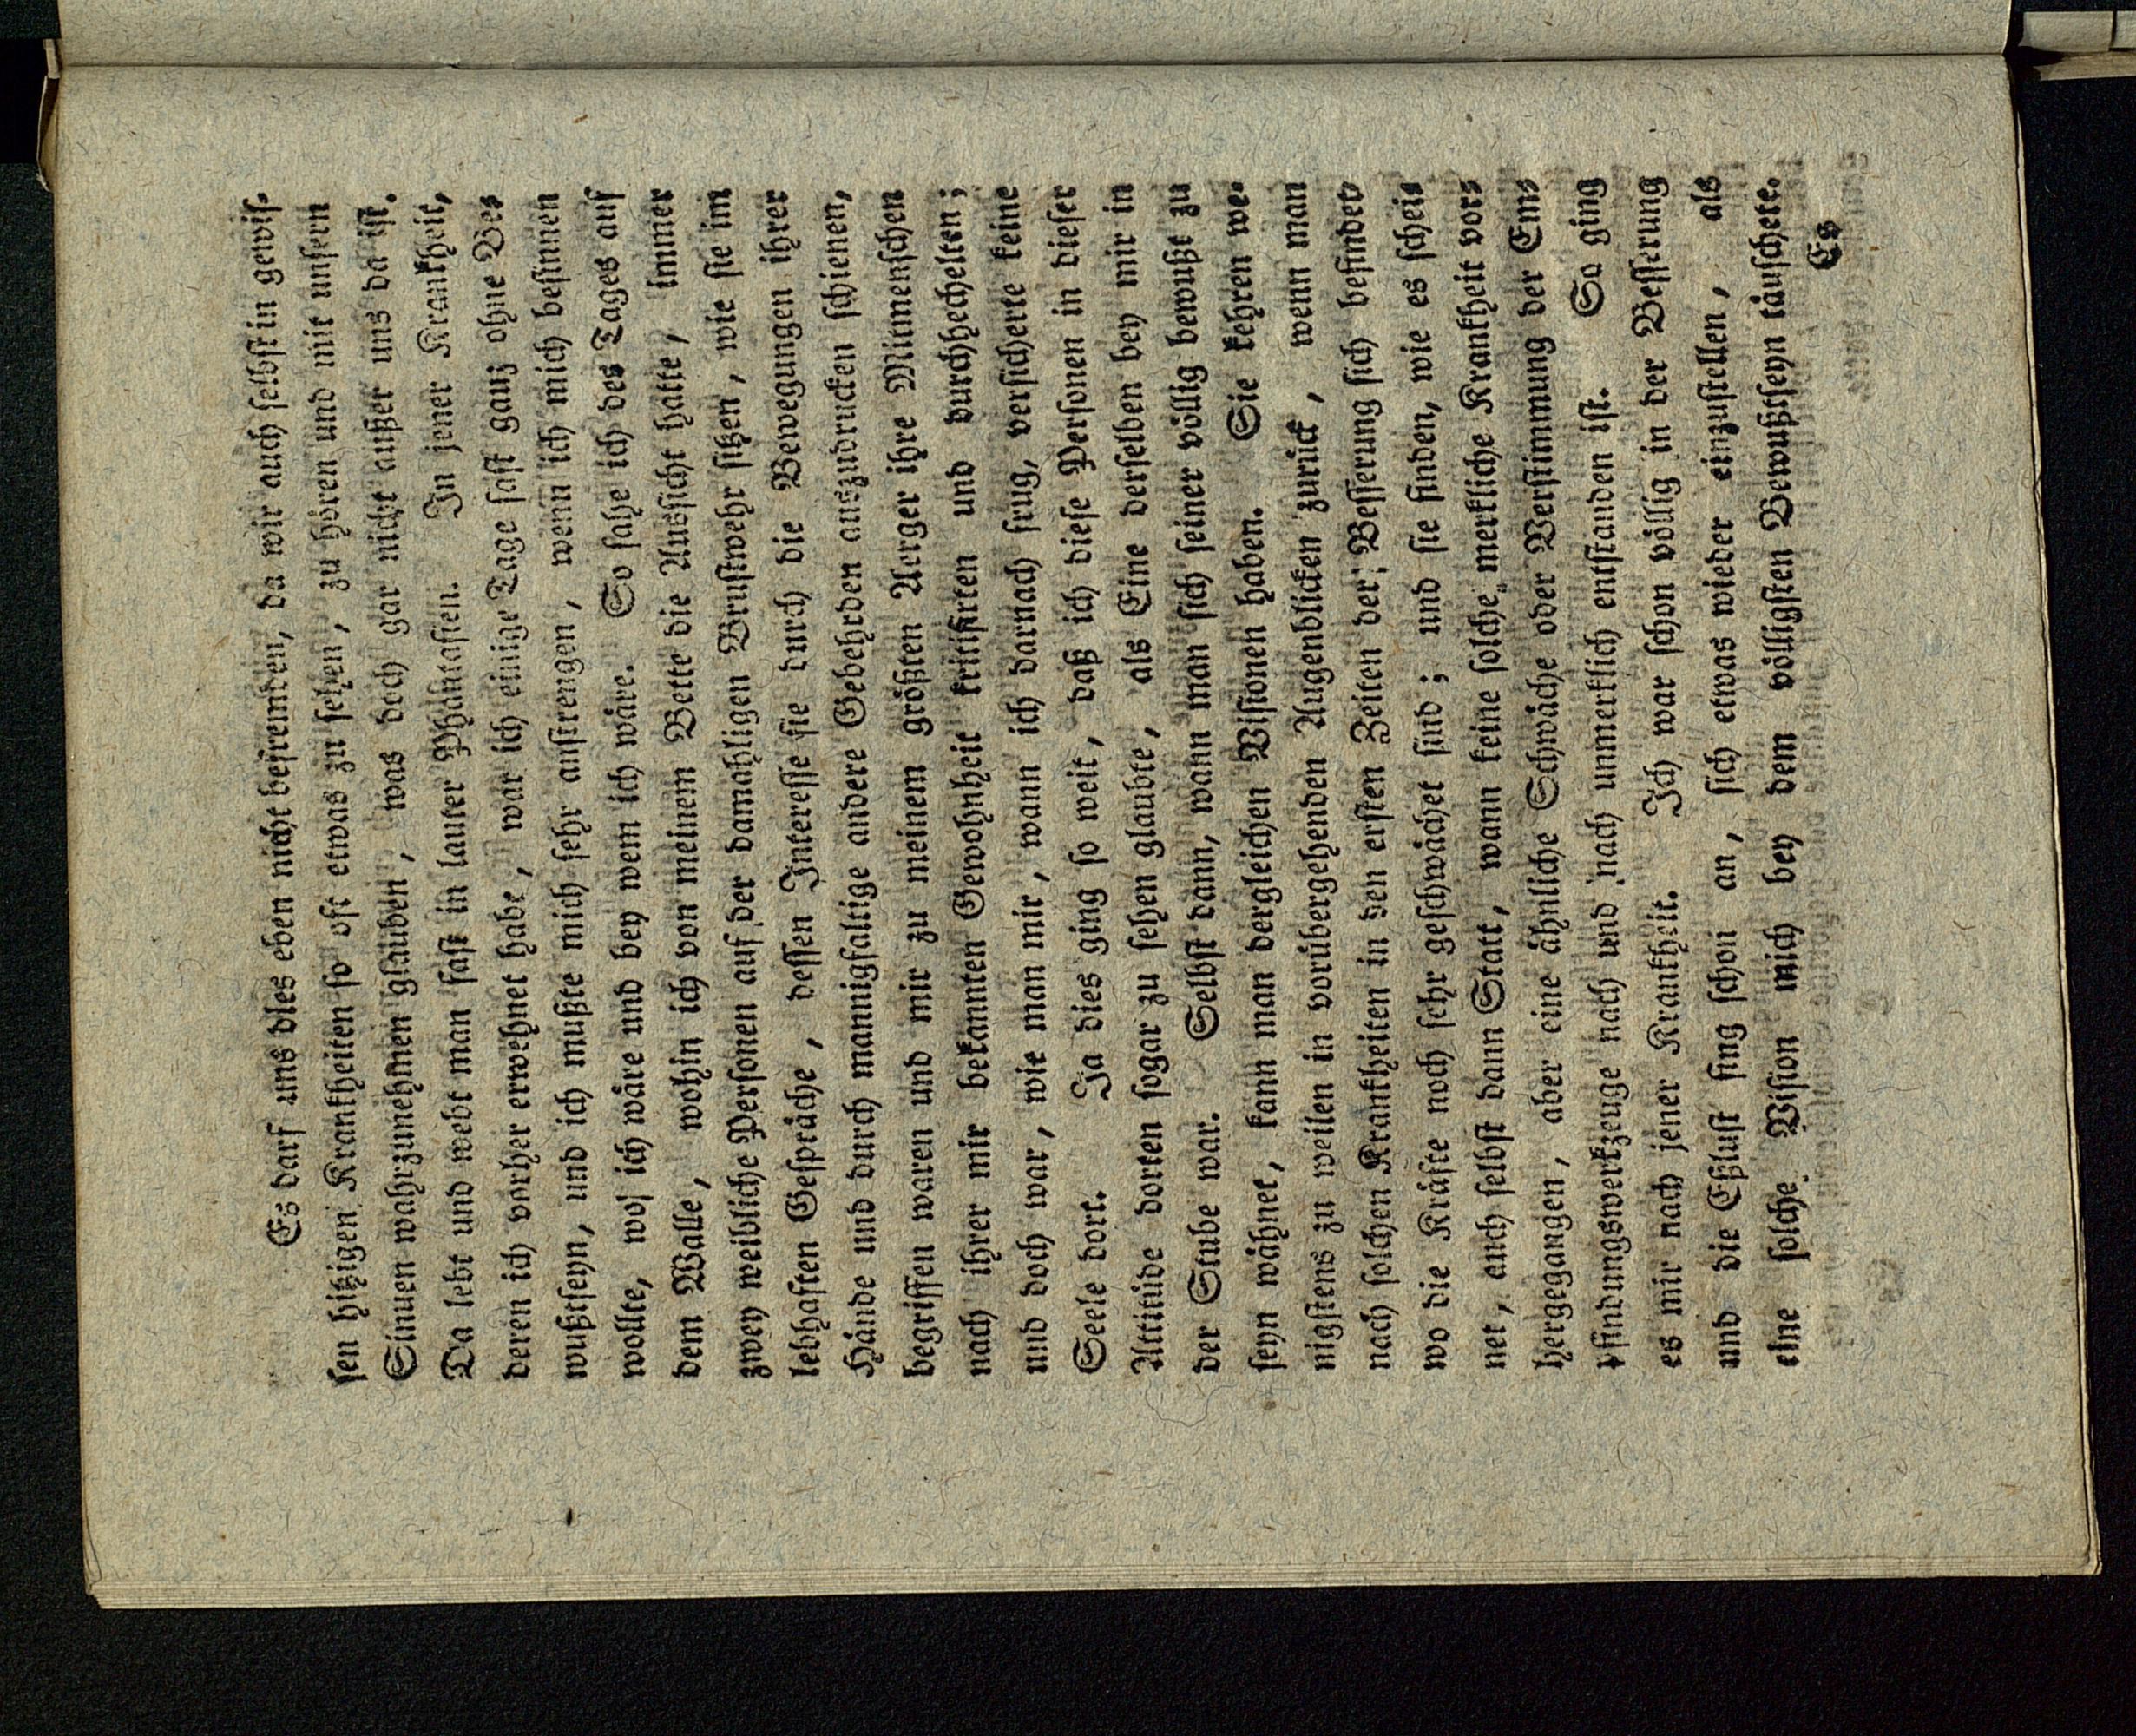 Es darf uns dies eben nicht befremden, da wir auch selbst in gewis-
sen hitzigen Krankheiten so oft etwas zu sehen, zu hören und mit unsern
Sinnen wahrzunehmen glauben, was doch gar nicht außer uns da ist.
Da lebt und webt man fast in lauter Phantasien. In jener Krankheit,
deren ich vorher erwehnet habe, war ich einige Tage fast ganz ohne Be-
wußtseyn, und ich mußte mich sehr anstrengen, wenn ich mich besinnen
wollte, wo ich wäre und bey wem ich wäre. So sahe ich des Tages auf
dem Walle, wohin ich von meinem Bette die Aussicht hatte, immer
zwey weibliche Personen auf der damahligen Brustwehr sitzen, wie sie im
lebhaften Gespräche, dessen Interesse sie durch die Bewegungen ihrer
Hände und durch mannigfaltige andere Gebehrden auszudrucken schienen,
begriffen waren und mir zu meinem größten Aerger ihre Mitmenschen
nach ihrer mir bekannten Gewohnheit kritisirten und durchhechelten;
und doch war, wie man mir, wann ich darnach frug, versicherte keine
Seele dort. Ja dies ging so weit, daß ich diese Personen in dieser
Attitüde dorten sogar zu sehen glaubte, als Eine derselben bey mir in
der Stube war. Selbst dann, wann man sich seiner völlig bewußt zu
seyn wähnet, kann man dergleichen Visionen haben. Sie kehren we-
nigstens zu weilen in vorübergehenden Augenblicken zurück, wenn man
nach solchen Krankheiten in den ersten Zeiten der Besserung sich befindet
wo die Kräfte noch sehr geschwächet sind; und sie finden, wie es schei-
net, auch selbst dann Statt, wann keine solche merkliche Krankheit vor-
hergegangen, aber eine ähnliche Schwäche oder Verstimmung der Em-
pfindungswerkzeuge nach und nach unmerklich entstanden ist. Sa ging
es mir nach jener Krankheit. Ich war schon völlig in der Besserung
und die Eßlust fing schon an, sich etwas wieder einzustellen, als
eine solche Vision mich bey dem völligsten Bewußtseyn täuschete.
Es